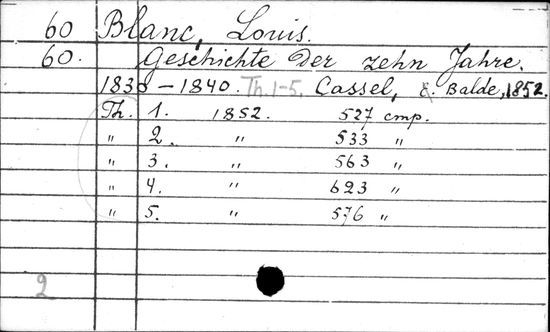 60 Blanc, Louis.
60. Geschichte der zehn Jahre.
1830 – 1840. Th. 1-5. Cassel, E. Balde, 1852.
Th. 1. 1852. 527 cmp.
" 2. " 533 "
" 3. " 563 "
" 4. " 623 "
" 5. " 576 "
2